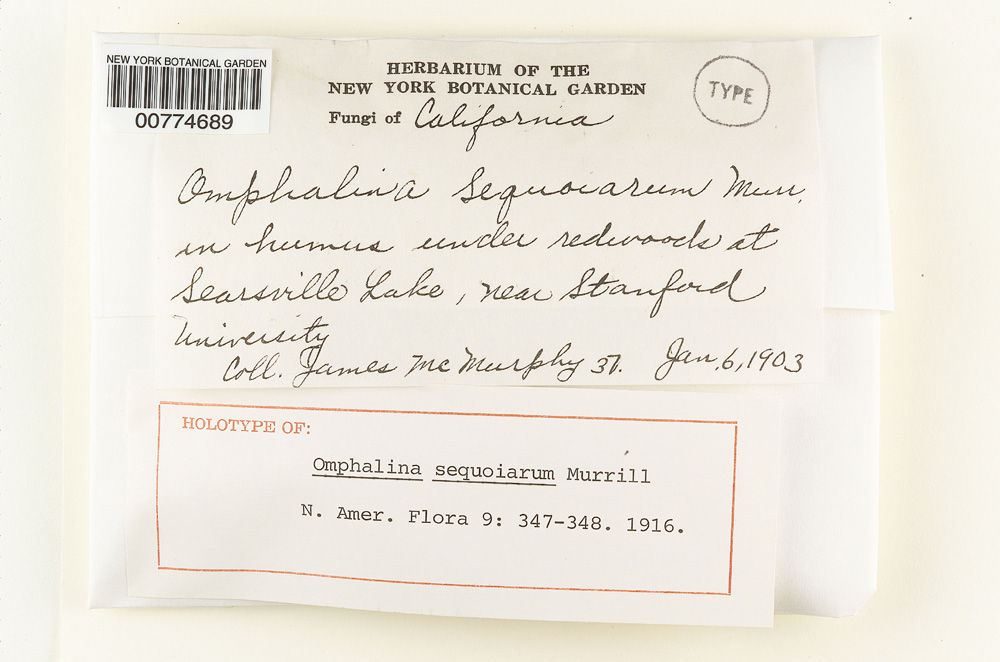 NEW YORK BOTANICAL GARDEN
00774689
HERBARIUM OF THE
NEW YORK BOTANICAL GARDEN
Fungi of California
TYPE
Omphalina sequoiarum Murr.
in humus under redwoods at
Searsville Lake, near Stanford
University
Coll. James McMurphy 37. Jan. 6, 1903
HOLOTYPE OF:
Omphalina sequoiarum Murrill
N. Amer. Flora 9: 347-348. 1916.